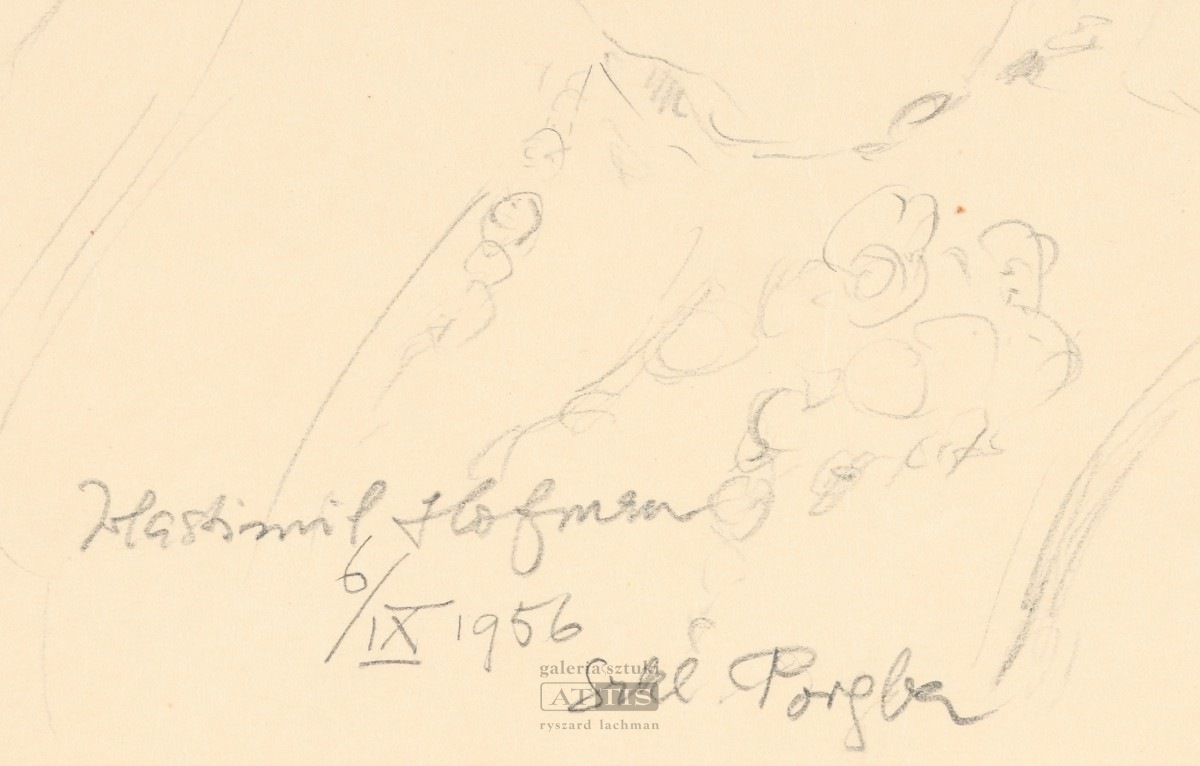 Wlastimil Hofman
6/IX 1956
Szkl Poręba
galeria sztuki
ATTIS
ryszard lachman